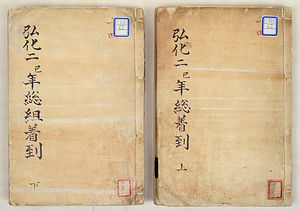 弘化二巳年総着到
上
弘化二巳年総組着到
下